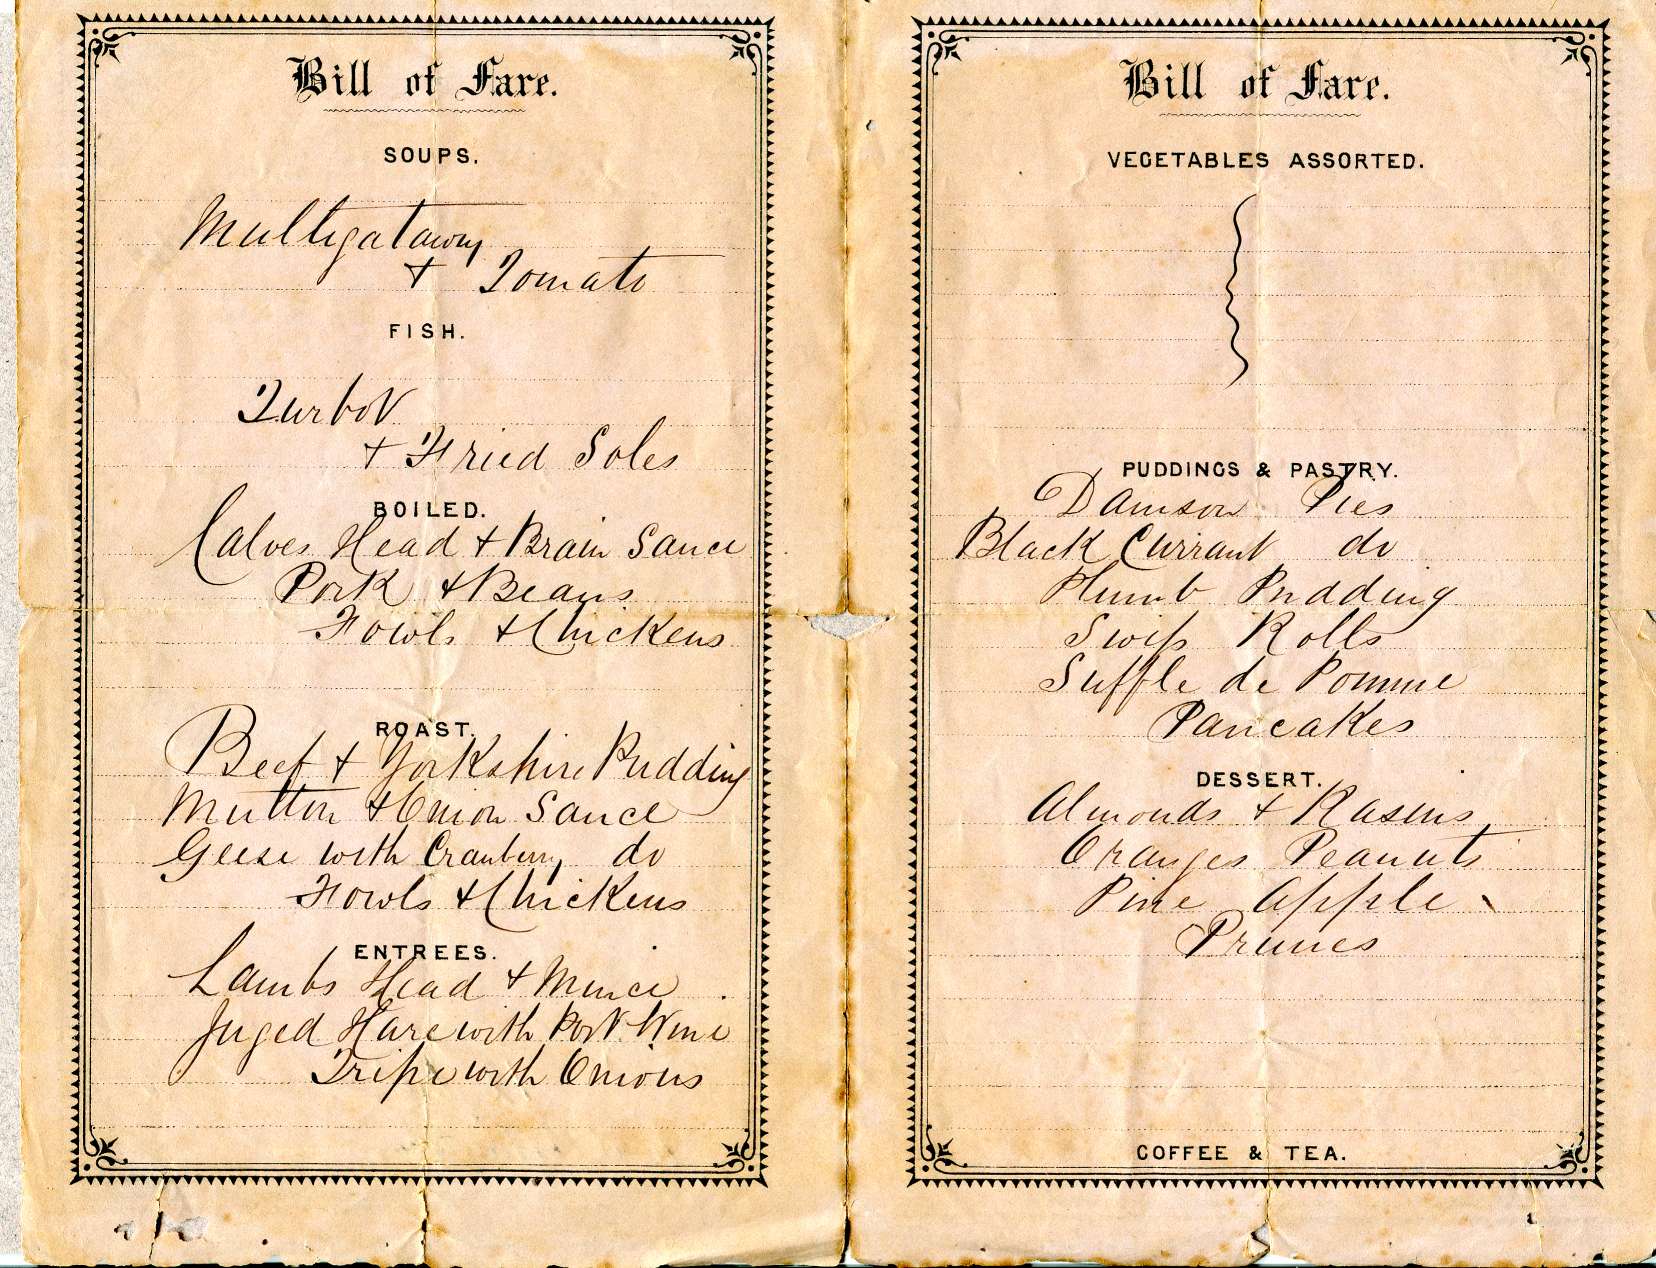 Bill of Fare.
SOUPS.
Mulligatawny
+ Tomato
FISH.
Turbot
+ Fried Soles
BOILED.
Calves Head + Brain Sauce
Pork + Beans
Fowls + Chickens
ROAST.
Beef + Yorkshire Pudding
Mutton + Onion Sauce
Geese with Cranberry do
Fowls + Chickens
ENTREES.
Lambs Head + Mince
Juged Hare with Port Wine
Tripe with Onions
Bill of Fare.
VEGETABLES ASSORTED.
PUDDINGS & PASTRY.
Damson Pies
Black Currant do
Plumb Pudding
Swiss Rolls
Suffle de Pomme
Pancakes
DESSERT.
Almonds + Rasins
Oranges Peanuts
Pine Apple
Prunes
COFFEE & TEA.